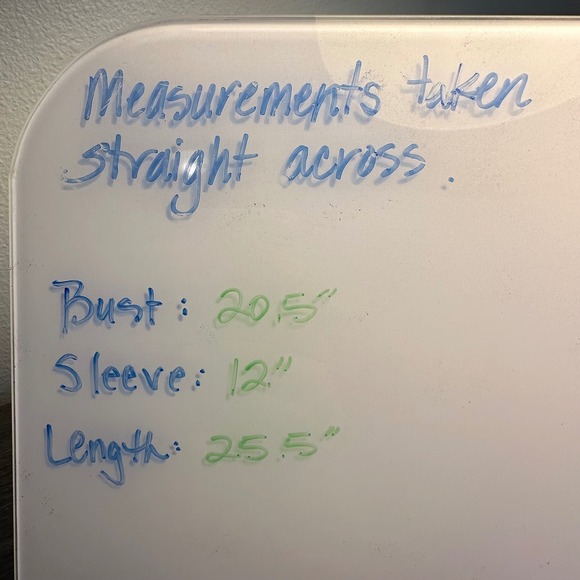 Measurements taken
straight across.
Bust: 20.5"
Sleeve: 12"
Length: 25.5"